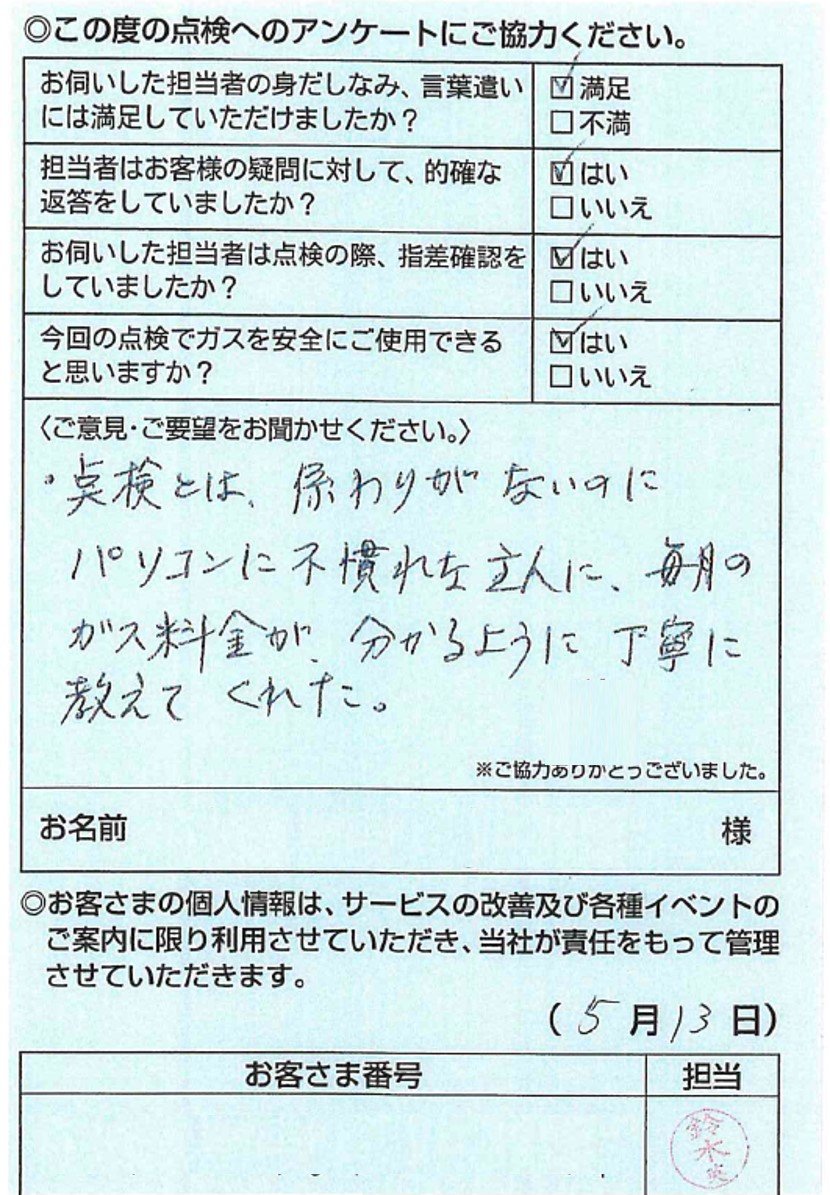 ◎この度の点検へのアンケートにご協力ください。
お伺いした担当者の身だしなみ、言葉遣い
には満足していただけましたか？
☑満足
□不満
担当者はお客様の疑問に対して、的確な
返答をしていましたか？
☑はい
□いいえ
お伺いした担当者は点検の際、指差確認を
していましたか？
☑はい
□いいえ
今回の点検でガスを安全にご使用できる
と思いますか？
☑はい
□いいえ
〈ご意見・ご要望をお聞かせください。〉
・点検とは、係わりがないのに
パソコンに不慣れな主人に、毎月の
ガス料金が、分かるように丁寧に
教えてくれた。
※ご協力ありがとうございました。
お名前 様
◎お客さまの個人情報は、サービスの改善及び各種イベントの
ご案内に限り利用させていただき、当社が責任をもって管理
させていただきます。
（5月13日）
お客さま番号 担当
鈴木英